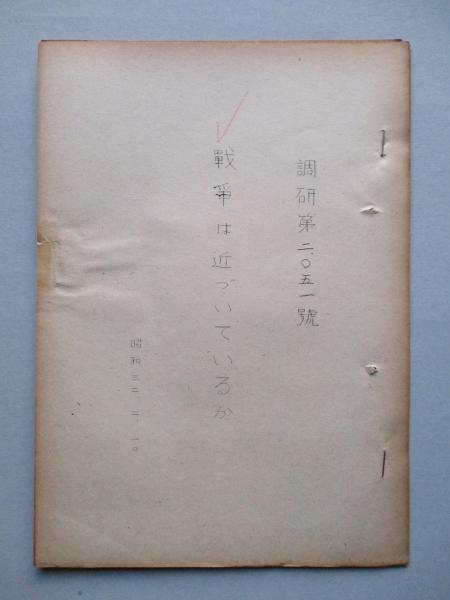 調研第二、〇五一號
戰爭は近づいているか
昭和三二 二 一〇